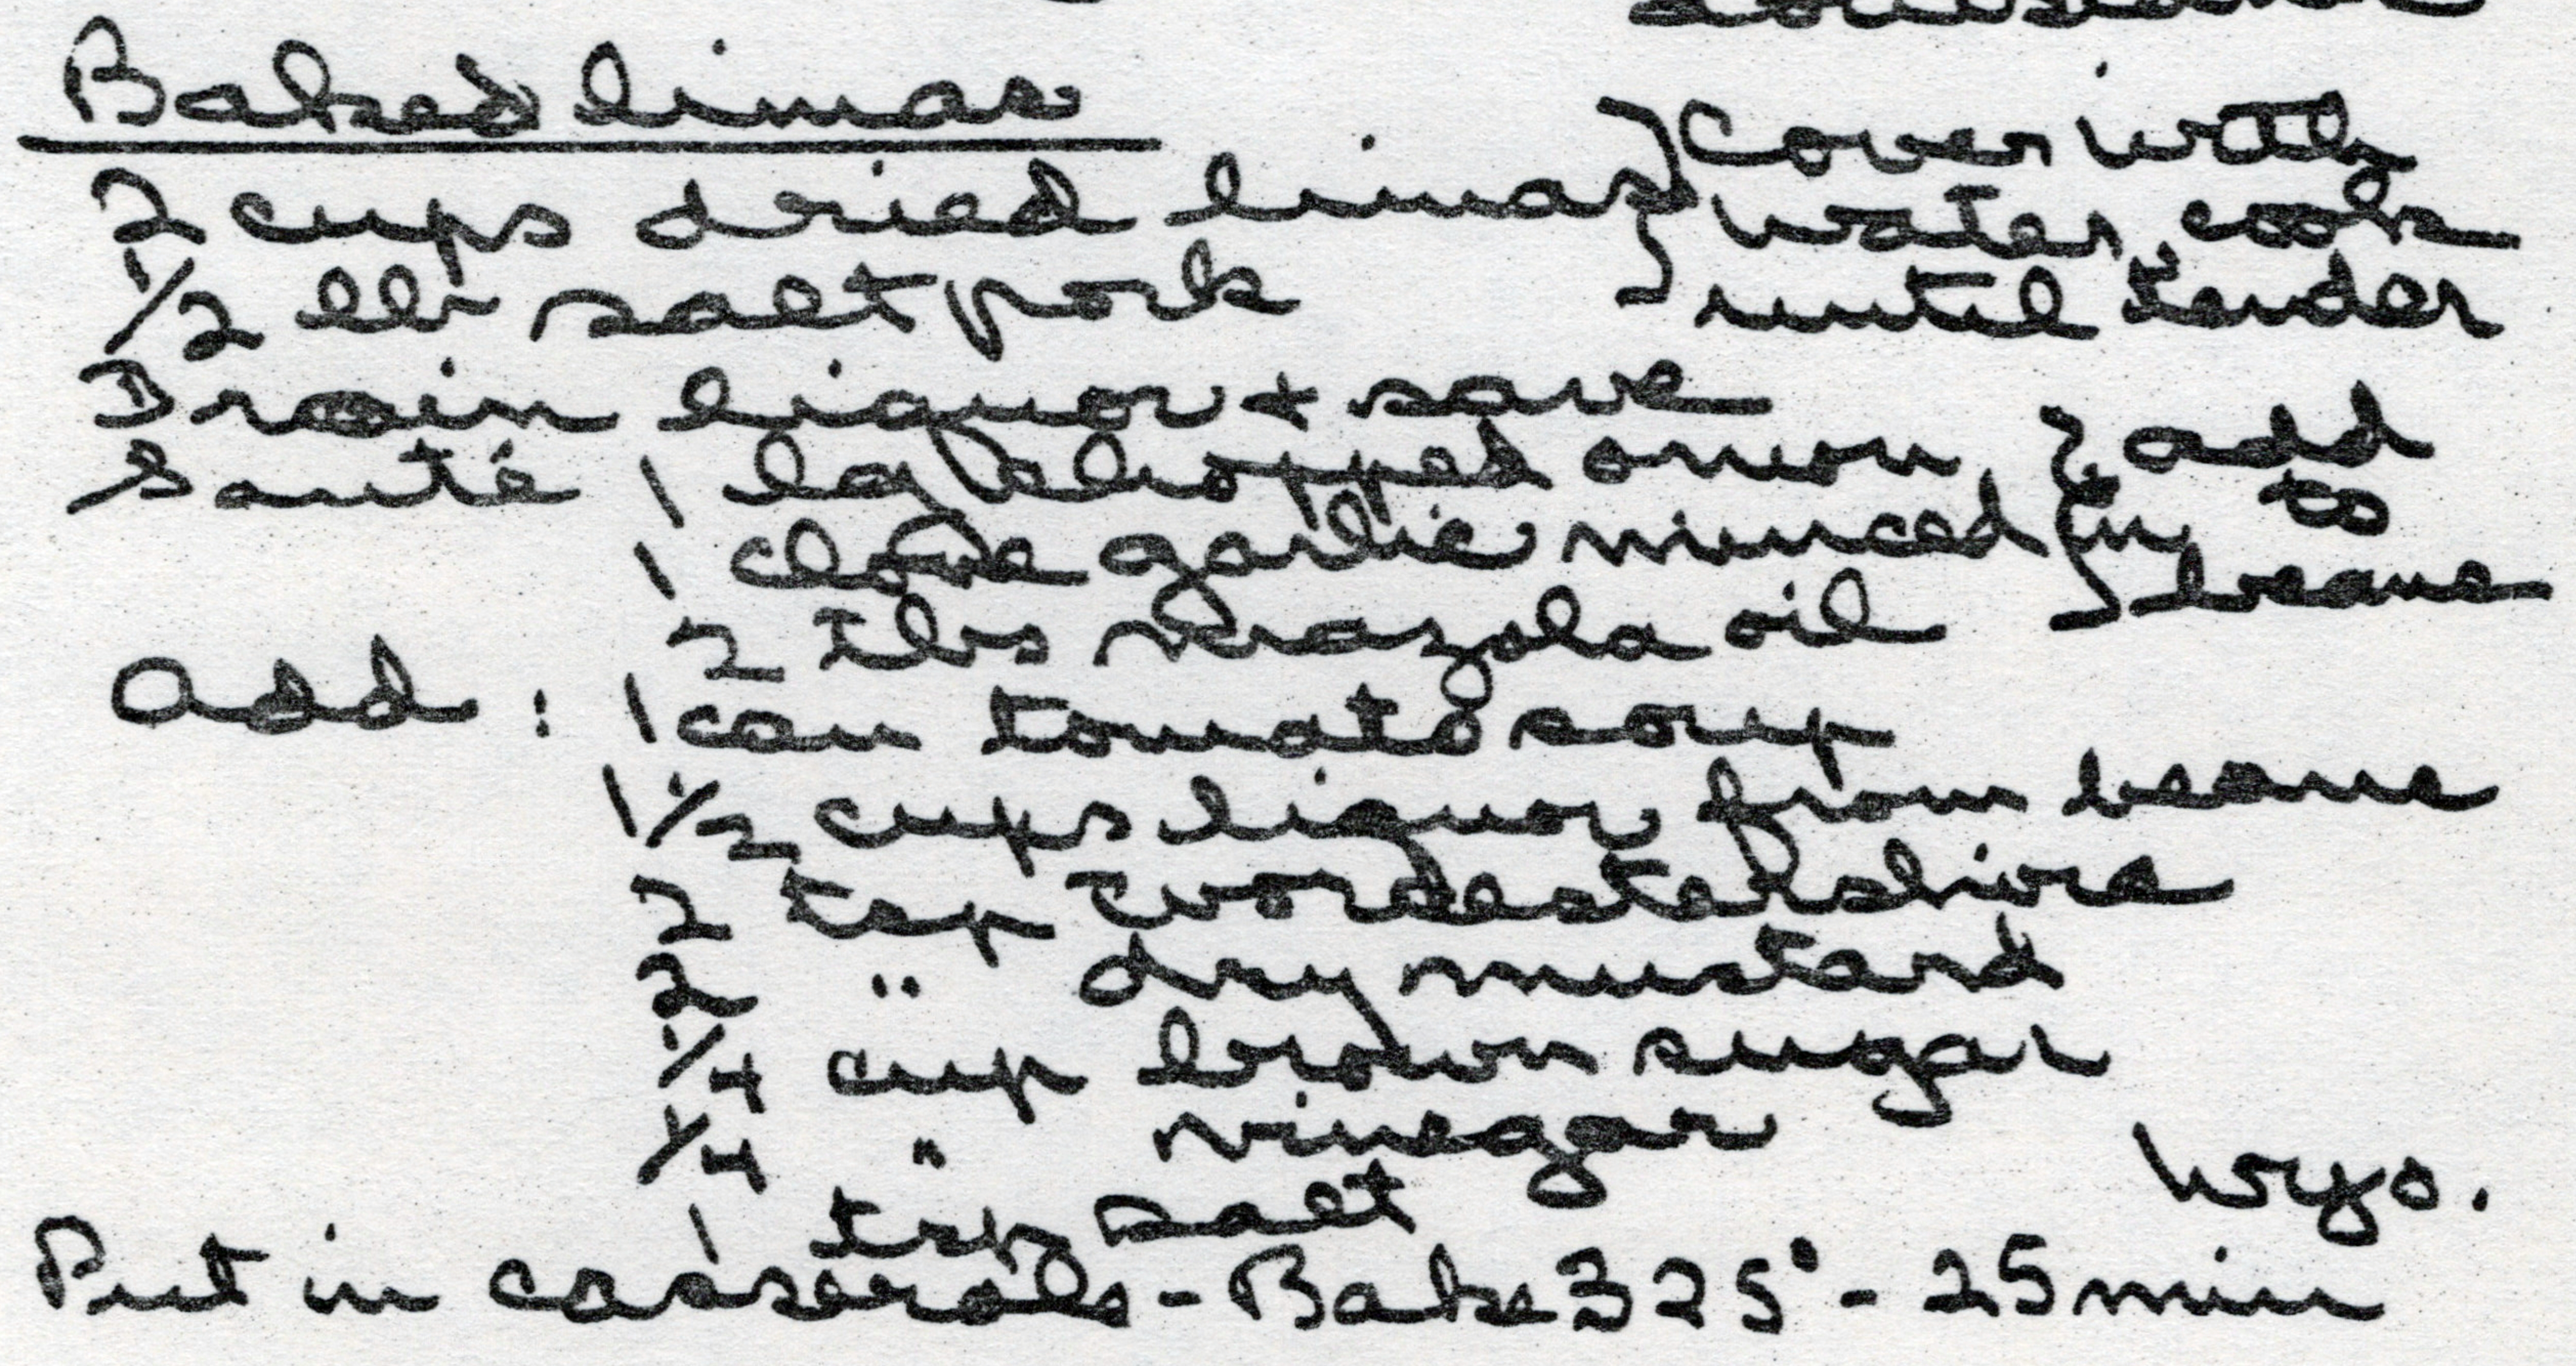 Baked limas
2 cups dried limas } Cover with
water, cook
1/2 lb salt pork } until tender
Drain liquor + save
Sauté 1 lg chopped onion, } add
1 clove garlic minced } in to
2 Tbs Mazola oil } beans
Add : 1 can tomato soup
1 1/2 cups liquor from beans
2 tsp Worcestershire
2 " dry mustard
1/4 cup brown sugar
1/4 " vinegar
Wyo.
1 tsp salt
Put in casserole - Bake 325° - 25 min